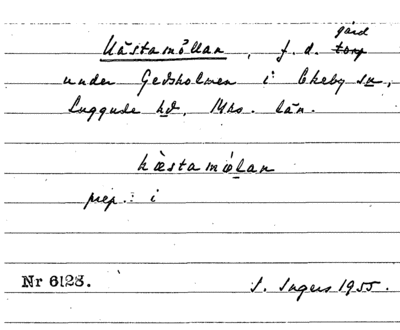 Hästamöllan, f.d. torp gård
under Gedsholmen i Ekeby sn,
Luggude hd, Mhs. län.
hæstamølan
prep.: i
Nr 6128.
I. Ingers 1955.